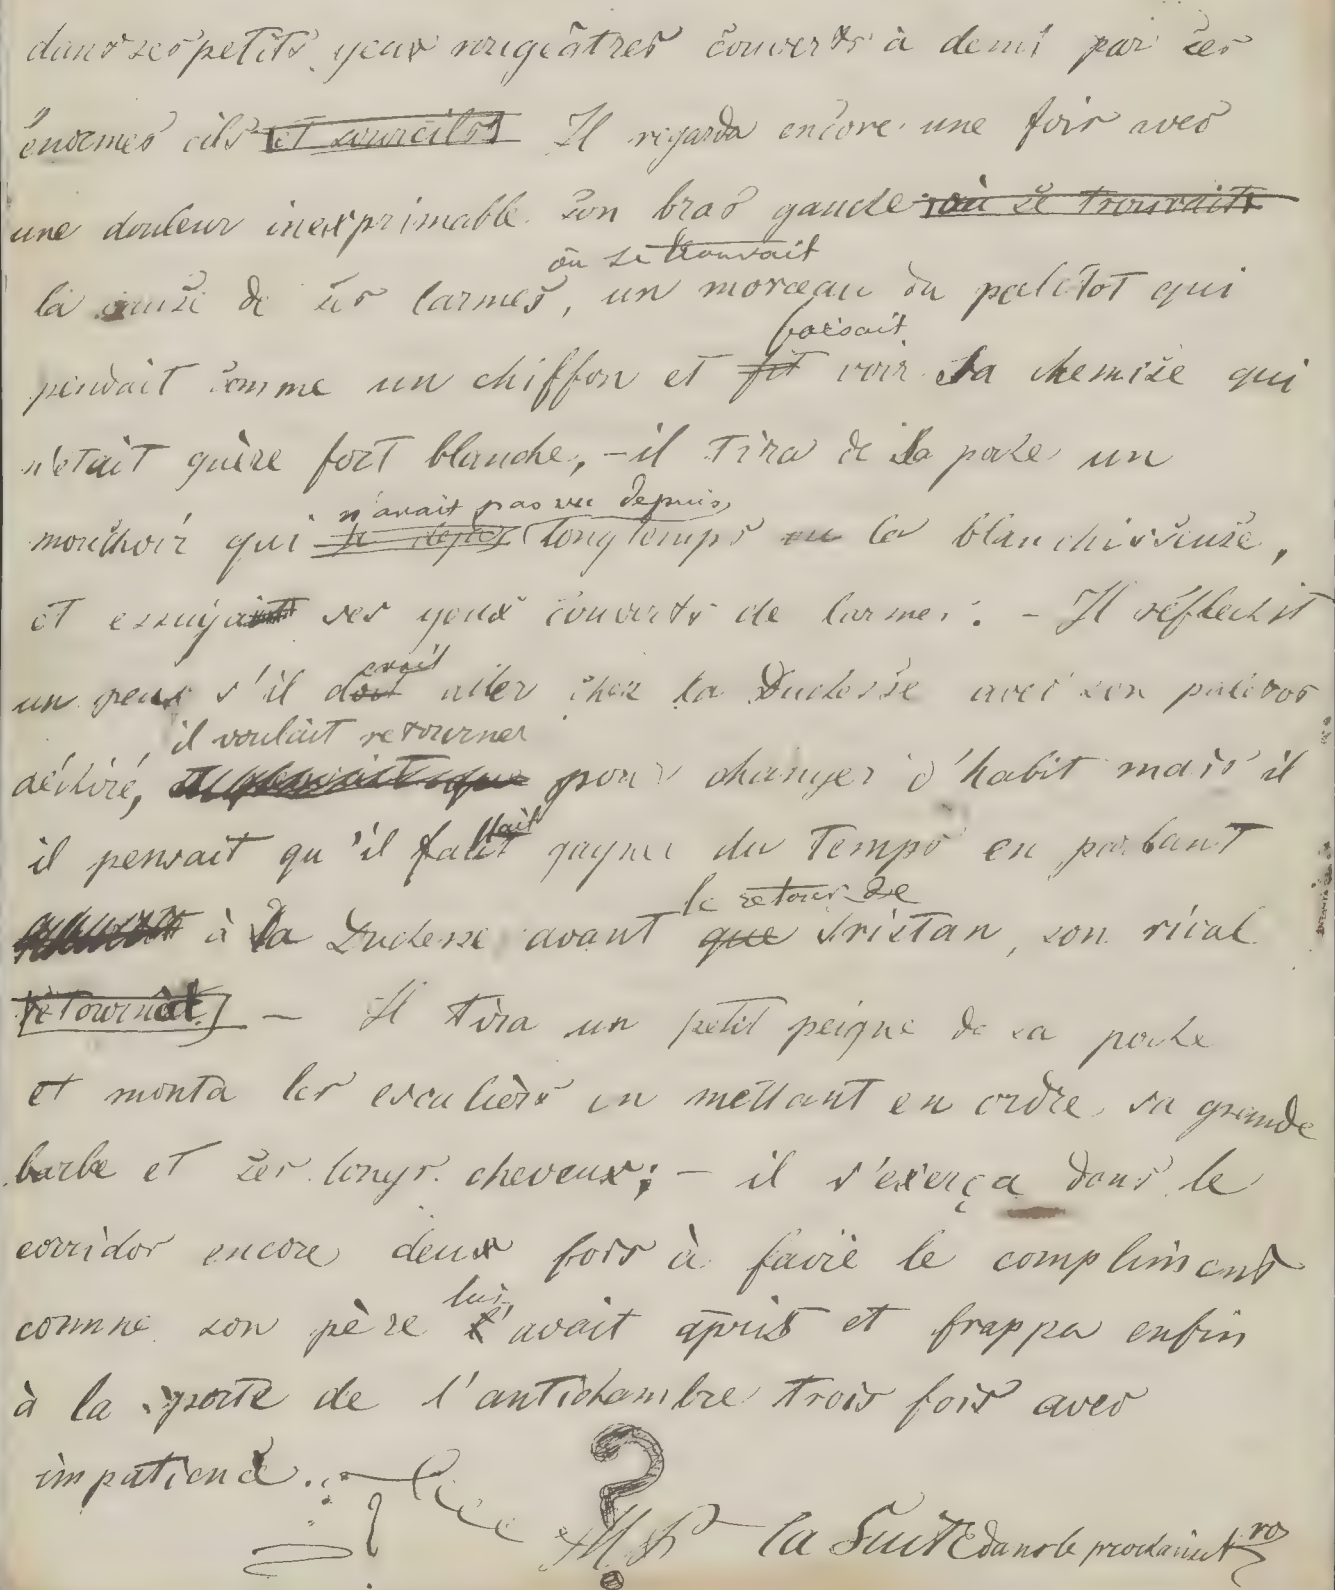 dans ses petits yeux rougeâtres couverts à demi par ses
énormes cils et sourcils Il regarda encore une fois avec
une douleur inexprimable son bras gauche où se trouvait
où se trouvait
la cause de ses larmes, un morceau du paletot qui
faisait
pendait comme un chiffon et fit voir sa chemise qui
n'etait guère fort blanche, - il tira de sa poche un
n'avait pas vu depuis
mouchoir qui longtemps vu la blanchisseuse,
et essuya ses yeux couverts de larmes. - Il réflechit
evait
un peu s'il doit aller chez la Duchesse avec son paletot
il voulait retourner
déchiré, pour changer d'habit mais il
il pensait qu'il fallait gagner du temps en parlant
le retour de
à la Duchesse avant que Tristan, son rival
retournât - Il tira un petit peigne de sa poche
et monta les escaliers en mettant en ordre sa grande
barbe et ses longs cheveux; - il s'exerça dans le
corridor encore deux fois à faire le compliment
lui
comme son père l'avait apris et frappa enfin
à la porte de l'antichambre trois fois avec
impatience.
?
la Suite dans le prochain